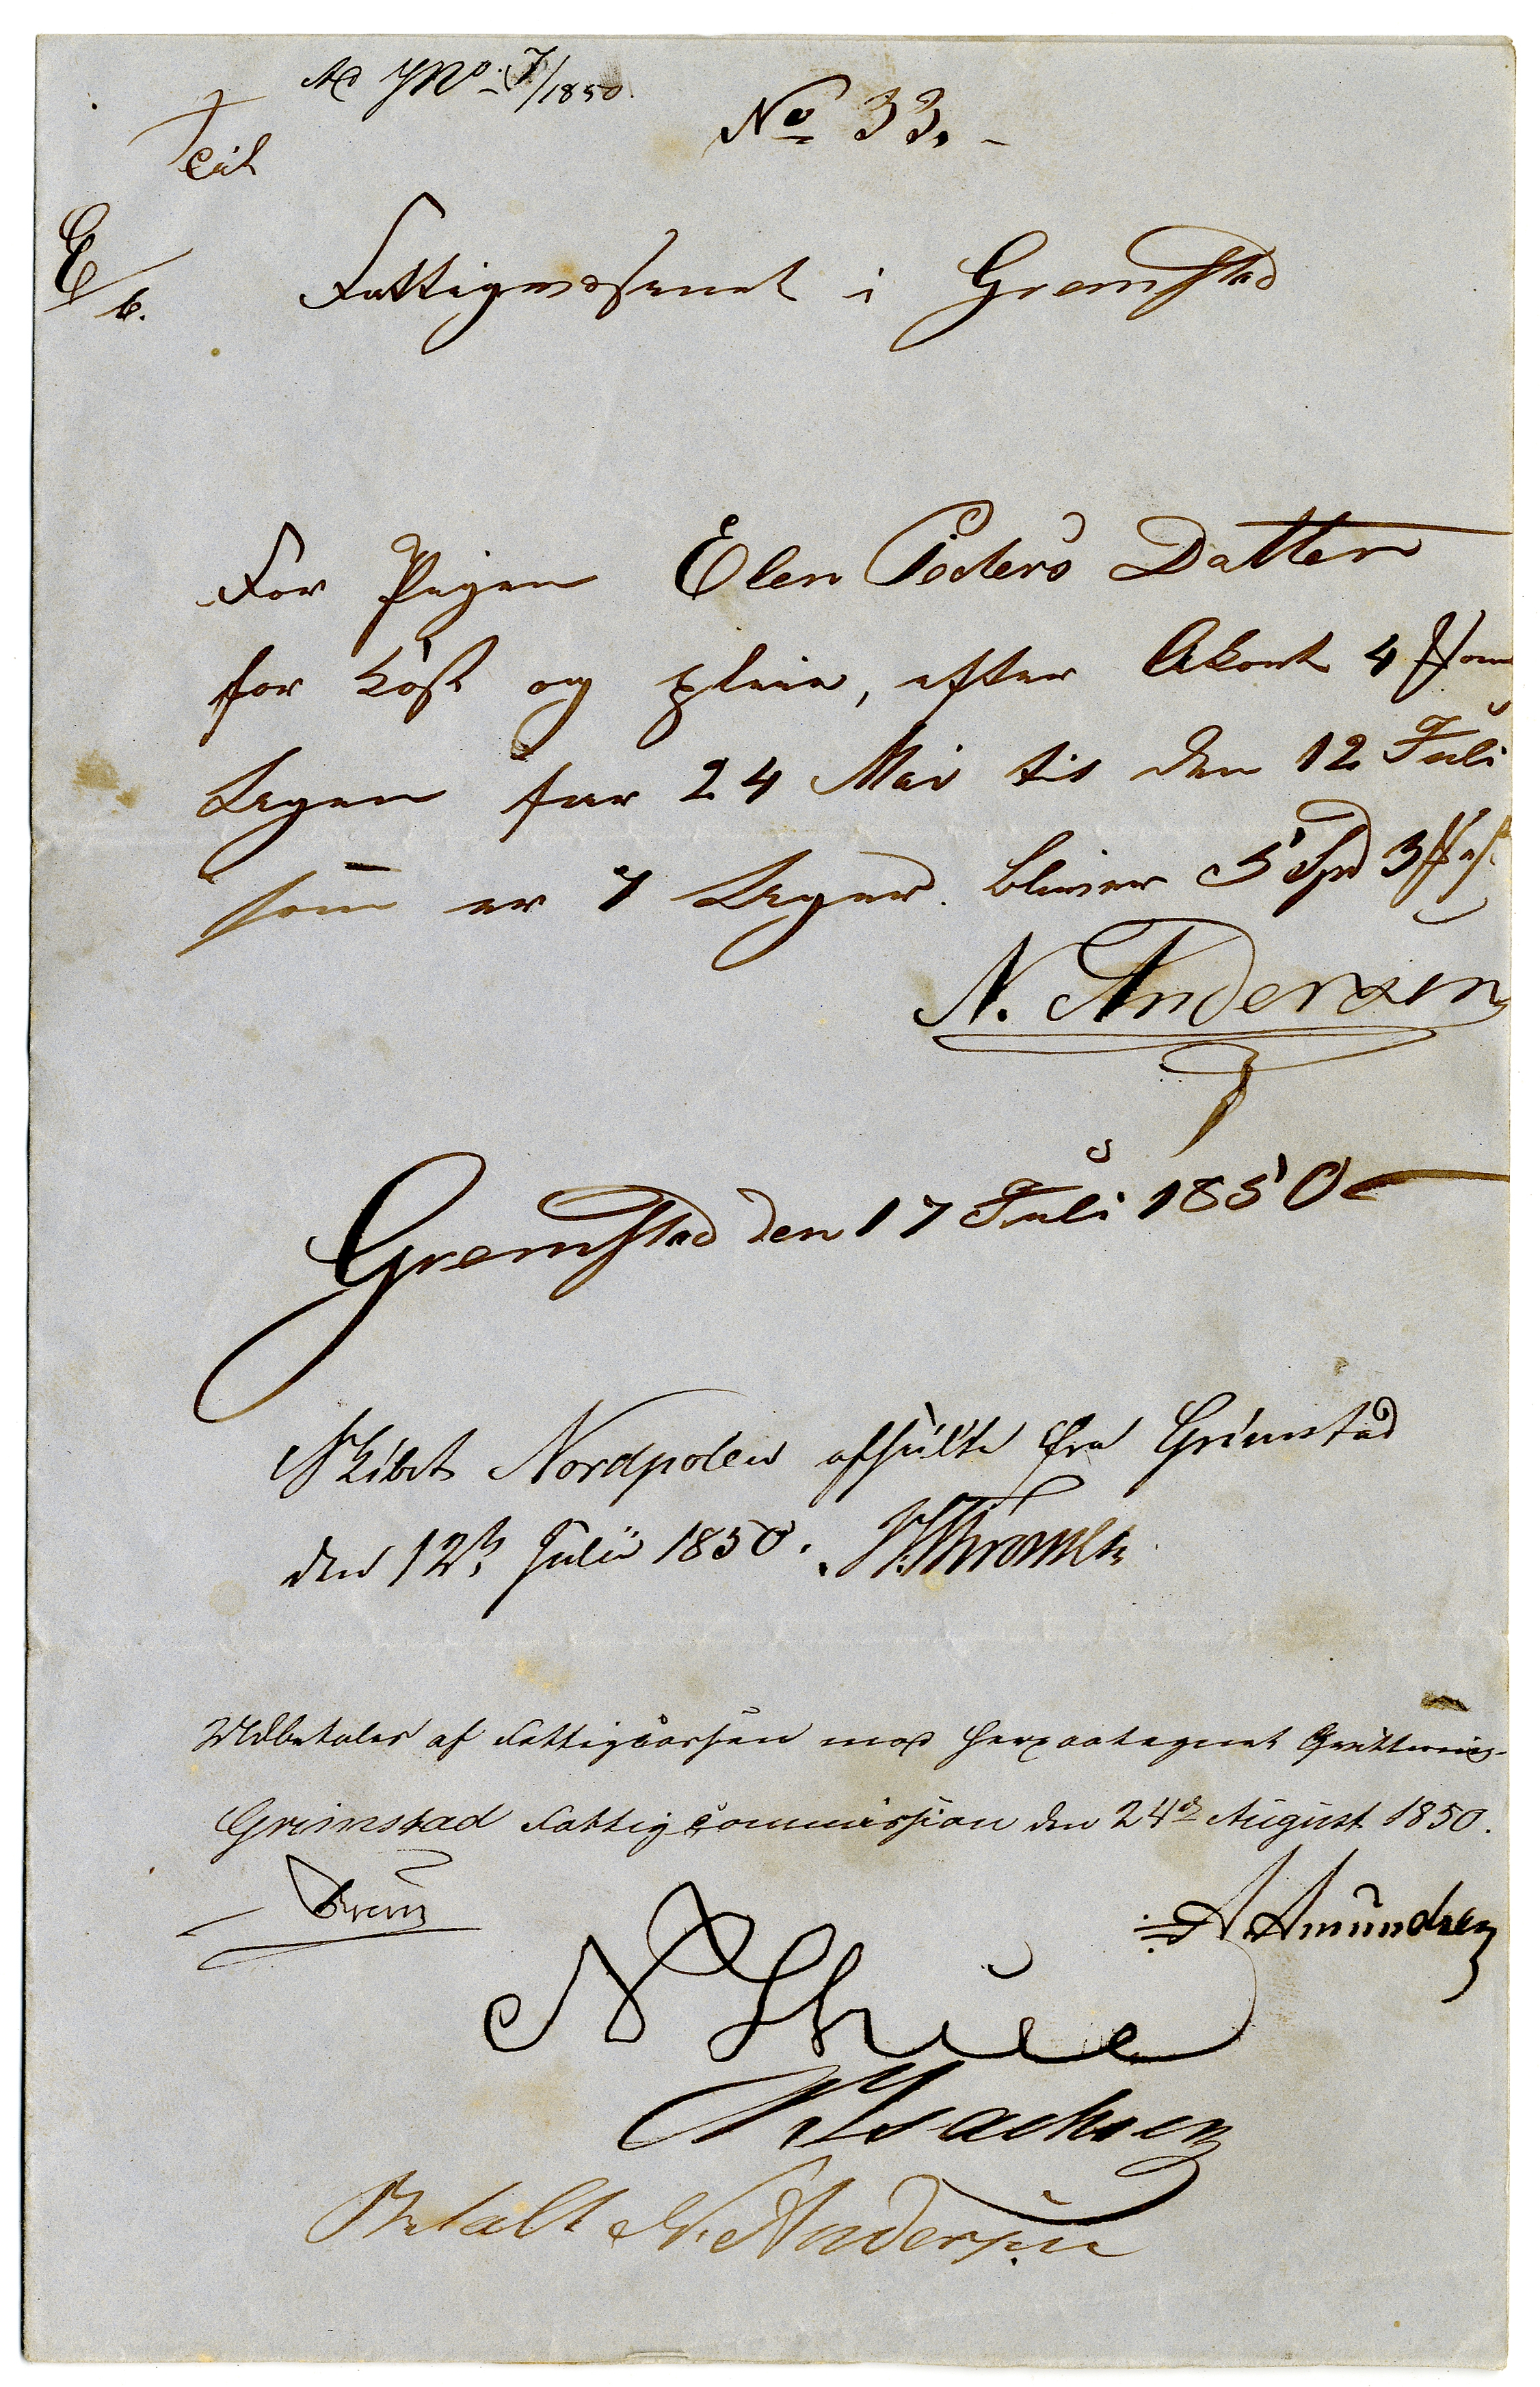 Ad JNo. 7/1850.
No 33. -
Teil
E/6.
Fattigvæsenet i Gremstad
For Pigen Elen Peders Datter
for kost og pleie, efter Akort 4 om
Ugen fra 24 Mai til den 12 Juli
som er 7 Uger. bliver 5 Spd 3
N. Andersen
Gremstad den 17 Juli 1850
Skibet Nordpolen afseilte fra Grimstad
den 12te Julii 1850.
Udbetales af Fattigcassen mod herpaategnet Qvittering.
Grimstad Fattigcommission den 24de August 1850.
A Amundsen
Isachsen
Betalt N. Andersen